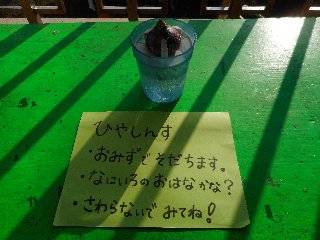 ひやしんす
・おみずでそだちます。
・なにいろのおはなかな?
・さわらないで みてね!